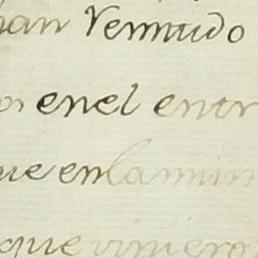 han Vermudo
os enel entr
ue enlamin
que vinieron